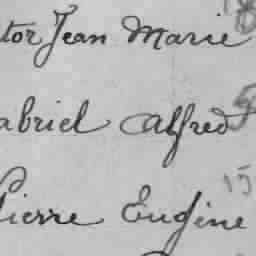 tor Jean Marie
abriel Alfred
Pierre Eugène
15